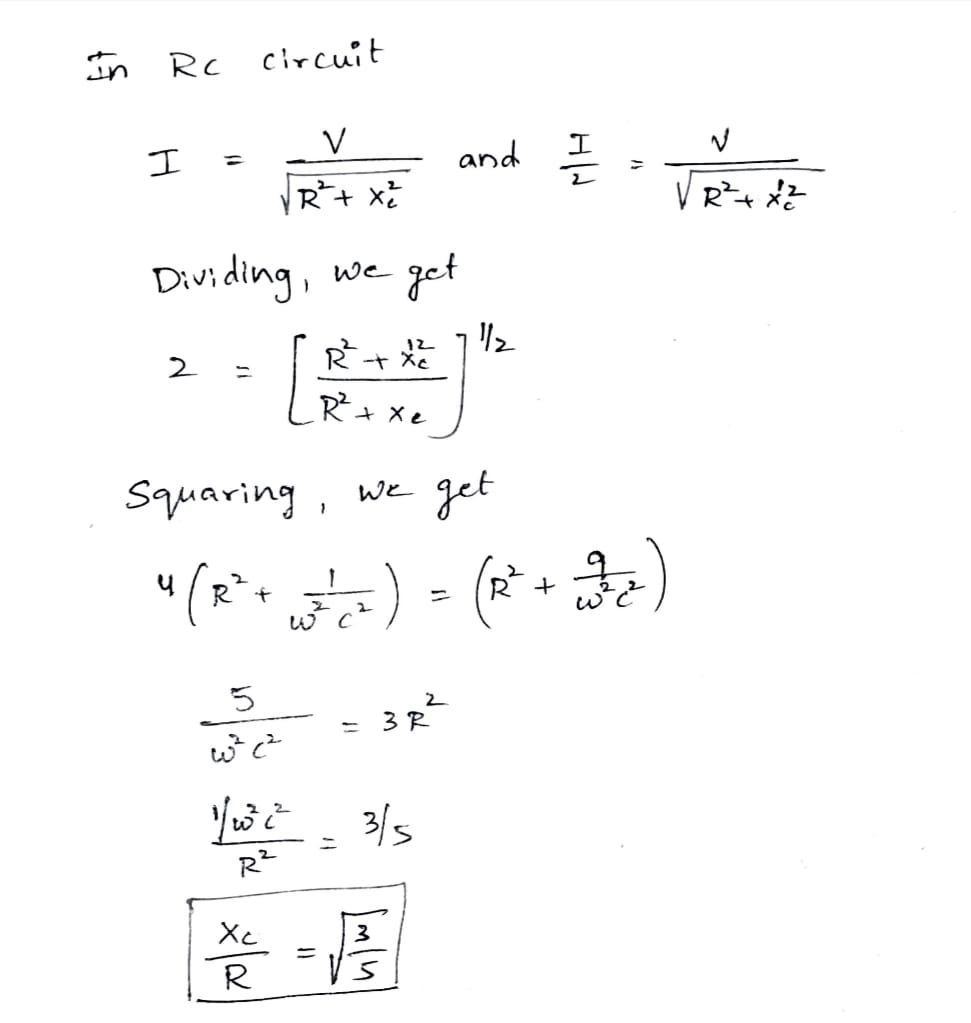 In RC circuit
I = V / √(R² + Xc²) and I/2 = V / √(R² + X'c²)
Dividing, we get
2 = [ (R² + X'c²) / (R² + Xc) ]^1/2
Squaring, we get
4(R² + 1/ω²c²) = (R² + 9/ω²c²)
5/ω²c² = 3R²
(1/ω²c²) / R² = 3/5
Xc/R = √(3/5)